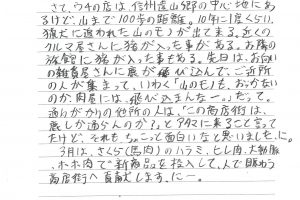 さて、ウチの店は、信州遠山郷の中心地にあ
るけど、山まで100歩の距離。10年に1度くらい、
猟犬に追われた山のモノが出て来る。近くの
クルマ屋さんに猪が入った事がある。お隣の
旅館に猪が入った事もある。先日は、お向い
の雑貨屋さんに鹿が飛び込んで、ご近所
の人が集まって、いわく「山のモノも、おっかない
のか肉屋には、飛び込まんなー。」だって。
通りがかりの他所の人は、「この商店街は、
鹿しか通らんのか?」と タマに来ることを言って
たけど、それも、ちょこっと面白いなと思いました、に。
3月は、さくら(馬肉)のハラミ、ヒレ肉、大動脈、
ホホ肉で新商品を投入して、人で賑わう
商店街へ貢献します、にー。